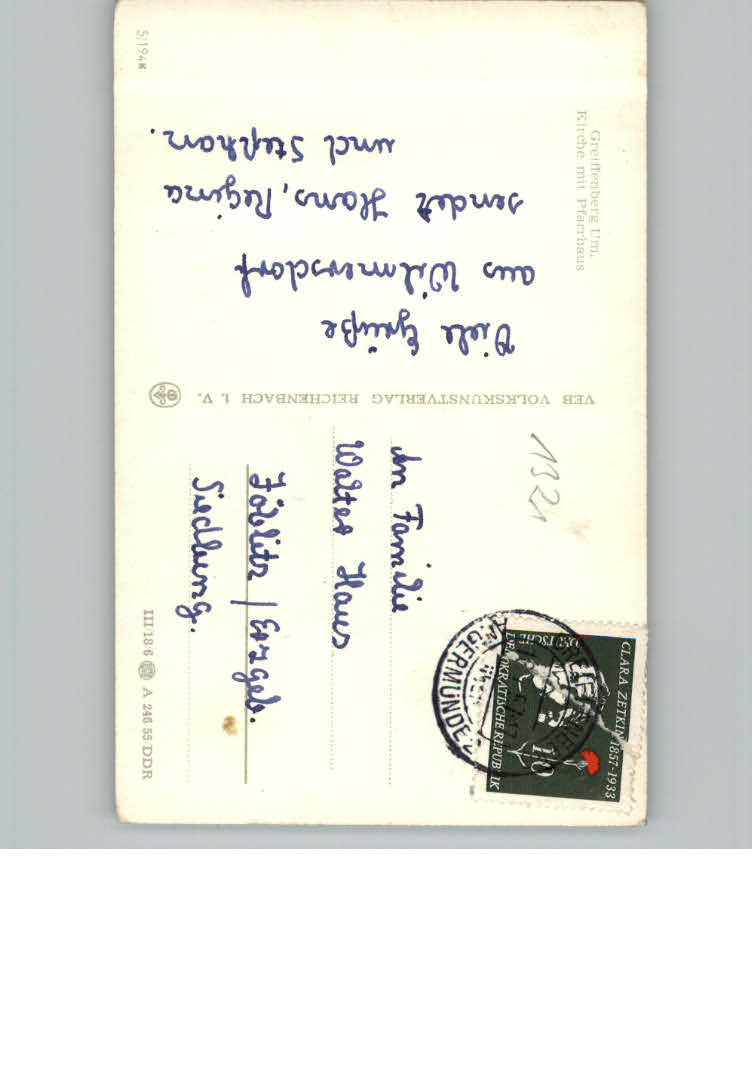 Greiffenberg Um.
Kirche mit Pfarrhaus
Viele Grüße
aus Wilmersdorf
sendet Hans, Regina
und Stephan.
5/194 K
VEB VOLKSKUNSTVERLAG REICHENBACH I. V.
1321
An Familie
Walter Haus
Zöblitz / Erzgeb.
Siedlung.
III/18/6 A 246 55 DDR
CLARA ZETKIN 1857-1933
10
DEUTSCHE
DEMOKRATISCHE REPUBLIK
ANGERMÜNDE